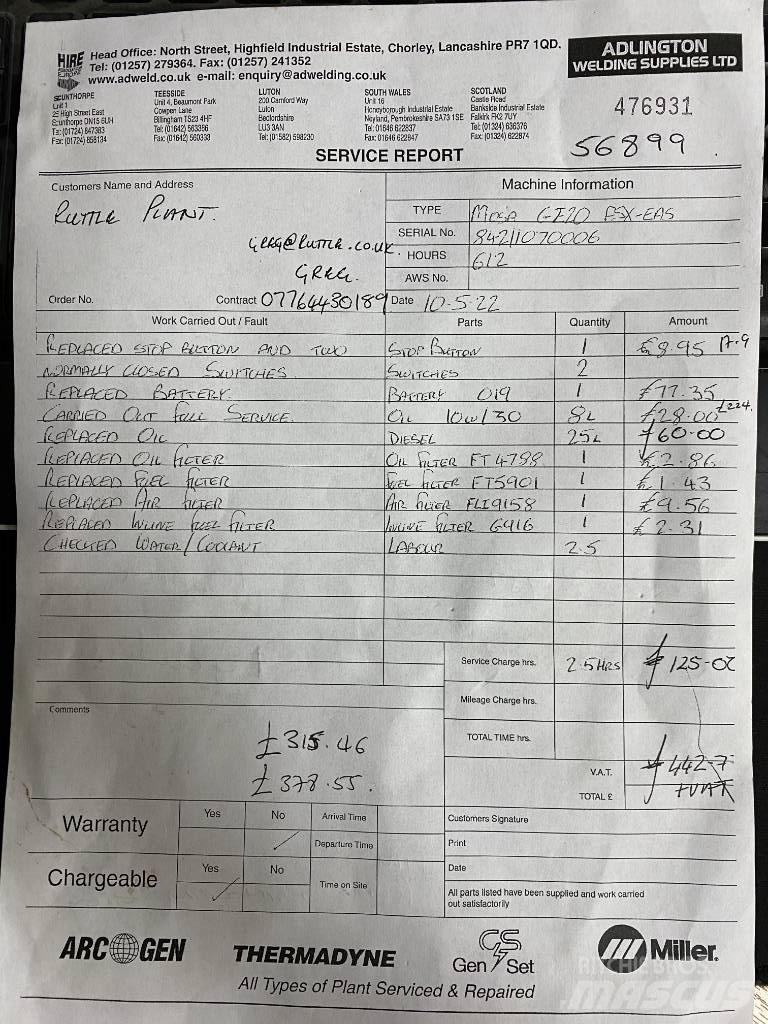 HIRE
Head Office: North Street, Highfield Industrial Estate, Chorley, Lancashire PR7 1QD.
Tel: (01257) 279364. Fax: (01257) 241352
www.adweld.co.uk e-mail: enquiry@adwelding.co.uk
ADLINGTON
WELDING SUPPLIES LTD
SCUNTHORPE
Unit 1
25 High Street East
Scunthorpe DN15 6UH
Tel: (01724) 847383
Fax: (01724) 858134
TEESIDE
Unit 4, Beaumont Park
Cowpen Lane
Billingham TS23 4HF
Tel: (01642) 563356
Fax: (01642) 560333
LUTON
200 Camford Way
Luton
Bedfordshire
LU3 3AN
Tel: (01582) 598230
SOUTH WALES
Unit 16
Honeyborough Industrial Estate
Neyland, Pembrokeshire SA73 1SE
Tel: 01646 622837
Fax: 01646 622847
SCOTLAND
Castle Road
Bankside Industrial Estate
Falkirk FK2 7UY
Tel: (01324) 636376
Fax: (01324) 622874
476931
56899
SERVICE REPORT
Customers Name and Address
RUTTLE PLANT.
GREG@RUTTLE.CO.UK
GREG.
Order No.
Contract 07764430189
Machine Information
TYPE MOSA GE20 PSX-EAS
SERIAL No. 84211070006
HOURS 612
AWS No.
Date 10-5-22
Work Carried Out / Fault Parts Quantity Amount
REPLACED STOP BUTTON AND TWO STOP BUTTON 1 £8.95 17.9
NORMALLY CLOSED SWITCHES. SWITCHES 2
REPLACED BATTERY. BATTERY 019 1 £77.35
CARRIED OUT FULL SERVICE. OIL 10W/30 8L £28.00 £224.
REPLACED OIL DIESEL 25L £60.00
REPLACED OIL FILTER OIL FILTER FT4798 1 £2.86
REPLACED FUEL FILTER FUEL FILTER FT5901 1 £1.43
REPLACED AIR FILTER AIR FILTER FLI9158 1 £9.56
REPLACED INLINE FUEL FILTER INLINE FILTER G916 1 £2.31
CHECKED WATER/COOLANT LABOUR 2.5
Service Charge hrs. 2.5HRS £125-00
Mileage Charge hrs.
TOTAL TIME hrs.
V.A.T. £442-7
TOTAL £ +VAT
Comments
£315.46
£378.55.
Warranty Yes No ✓
Chargeable Yes ✓ No
Arrival Time
Departure Time
Time on Site
Customers Signature
Print
Date
All parts listed have been supplied and work carried
out satisfactorily
ARC GEN
THERMADYNE
GS
Gen Set
Miller.
All Types of Plant Serviced & Repaired
RITCHIE BROS.
MASCUS